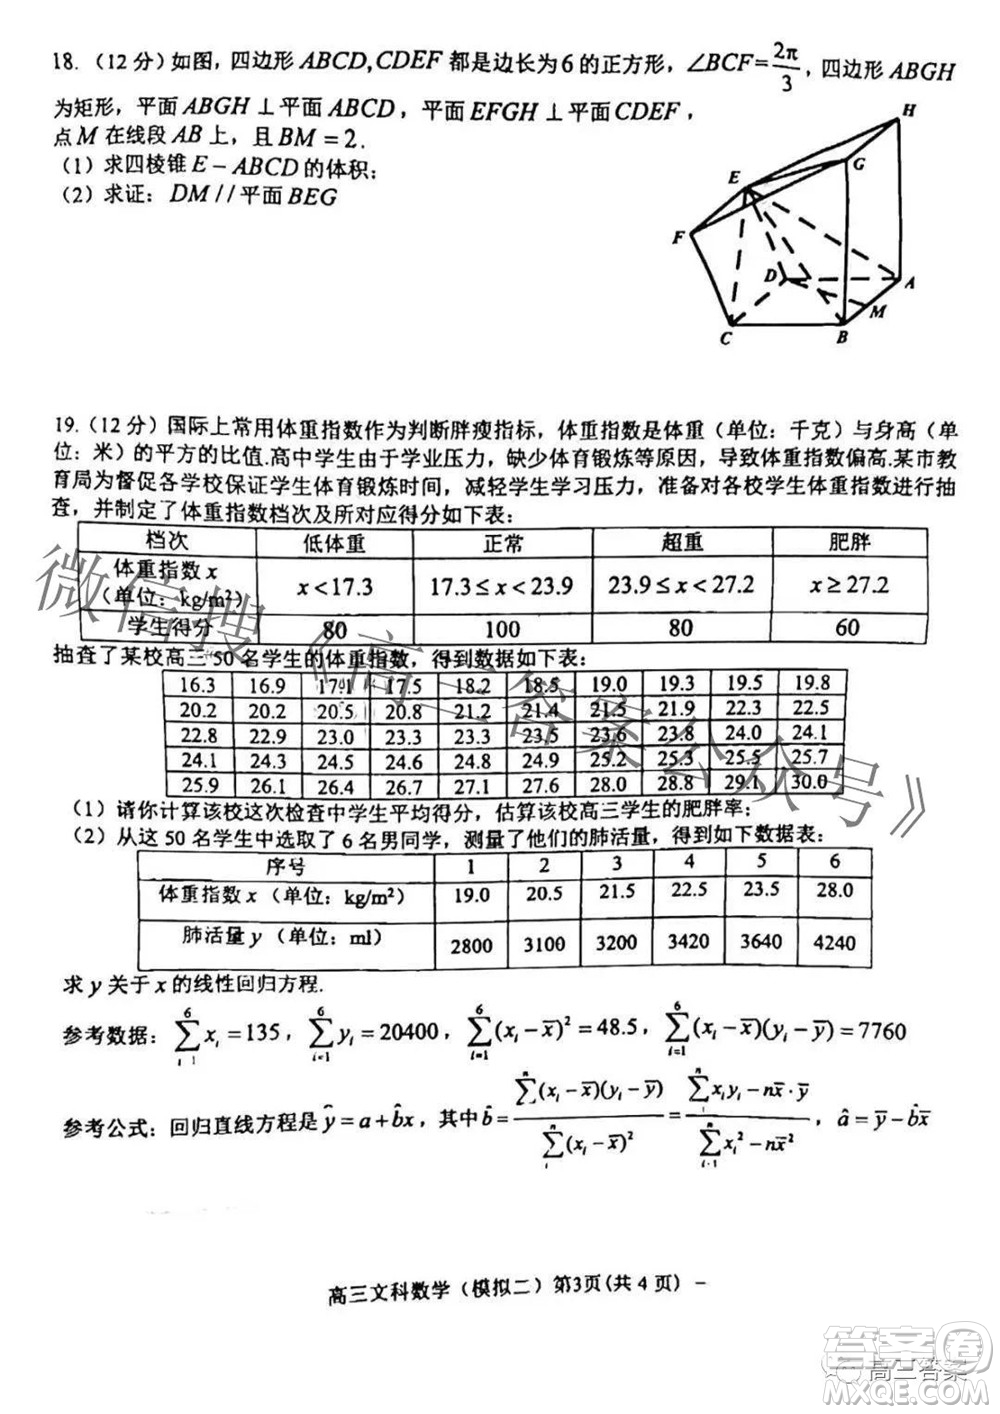 18. （12分）如图，四边形 ABCD, CDEF 都是边长为6的正方形，∠BCF = 2π/3，四边形 ABGH
为矩形，平面 ABGH ⊥ 平面 ABCD，平面 EFGH ⊥ 平面 CDEF，
点 M 在线段 AB 上，且 BM = 2.
（1）求四棱锥 E - ABCD 的体积；
（2）求证：DM // 平面 BEG
H
G
E
F
D
A
M
C
B
19.（12分）国际上常用体重指数作为判断胖瘦指标，体重指数是体重（单位：千克）与身高（单
位：米）的平方的比值.高中学生由于学业压力，缺少体育锻炼等原因，导致体重指数偏高.某市教
育局为督促各学校保证学生体育锻炼时间，减轻学生学习压力，准备对各校学生体重指数进行抽
查，并制定了体重指数档次及所对应得分如下表：
档次 低体重 正常 超重 肥胖
体重指数 x
（单位：kg/m²） x < 17.3 17.3 ≤ x < 23.9 23.9 ≤ x < 27.2 x ≥ 27.2
学生得分 80 100 80 60
抽查了某校高三50名学生的体重指数，得到数据如下表：
16.3 16.9 17.1 17.5 18.2 18.5 19.0 19.3 19.5 19.8
20.2 20.2 20.5 20.8 21.2 21.4 21.5 21.9 22.3 22.5
22.8 22.9 23.0 23.3 23.3 23.5 23.6 23.8 24.0 24.1
24.1 24.3 24.5 24.6 24.8 24.9 25.2 25.3 25.5 25.7
25.9 26.1 26.4 26.7 27.1 27.6 28.0 28.8 29.1 30.0
（1）请你计算该校这次检查中学生平均得分，估算该校高三学生的肥胖率；
（2）从这50名学生中选取了6名男同学，测量了他们的肺活量，得到如下数据表：
序号 1 2 3 4 5 6
体重指数 x（单位：kg/m²） 19.0 20.5 21.5 22.5 23.5 28.0
肺活量 y（单位：ml） 2800 3100 3200 3420 3640 4240
求 y 关于 x 的线性回归方程.
参考数据：∑xᵢ = 135，∑yᵢ = 20400，∑(xᵢ - x̄)² = 48.5，∑(xᵢ - x̄)(yᵢ - ȳ) = 7760
参考公式：回归直线方程是 ŷ = a + b̂x，其中 b̂ = ∑(xᵢ - x̄)(yᵢ - ȳ) / ∑(xᵢ - x̄)² = (∑xᵢyᵢ - nx̄·ȳ) / (∑xᵢ² - nx̄²)，â = ȳ - b̂x̄
高三文科数学（模拟二）第3页(共4页) -
微信搜《高三答案公众号》
答案圈
高三答案
MXQE.COM